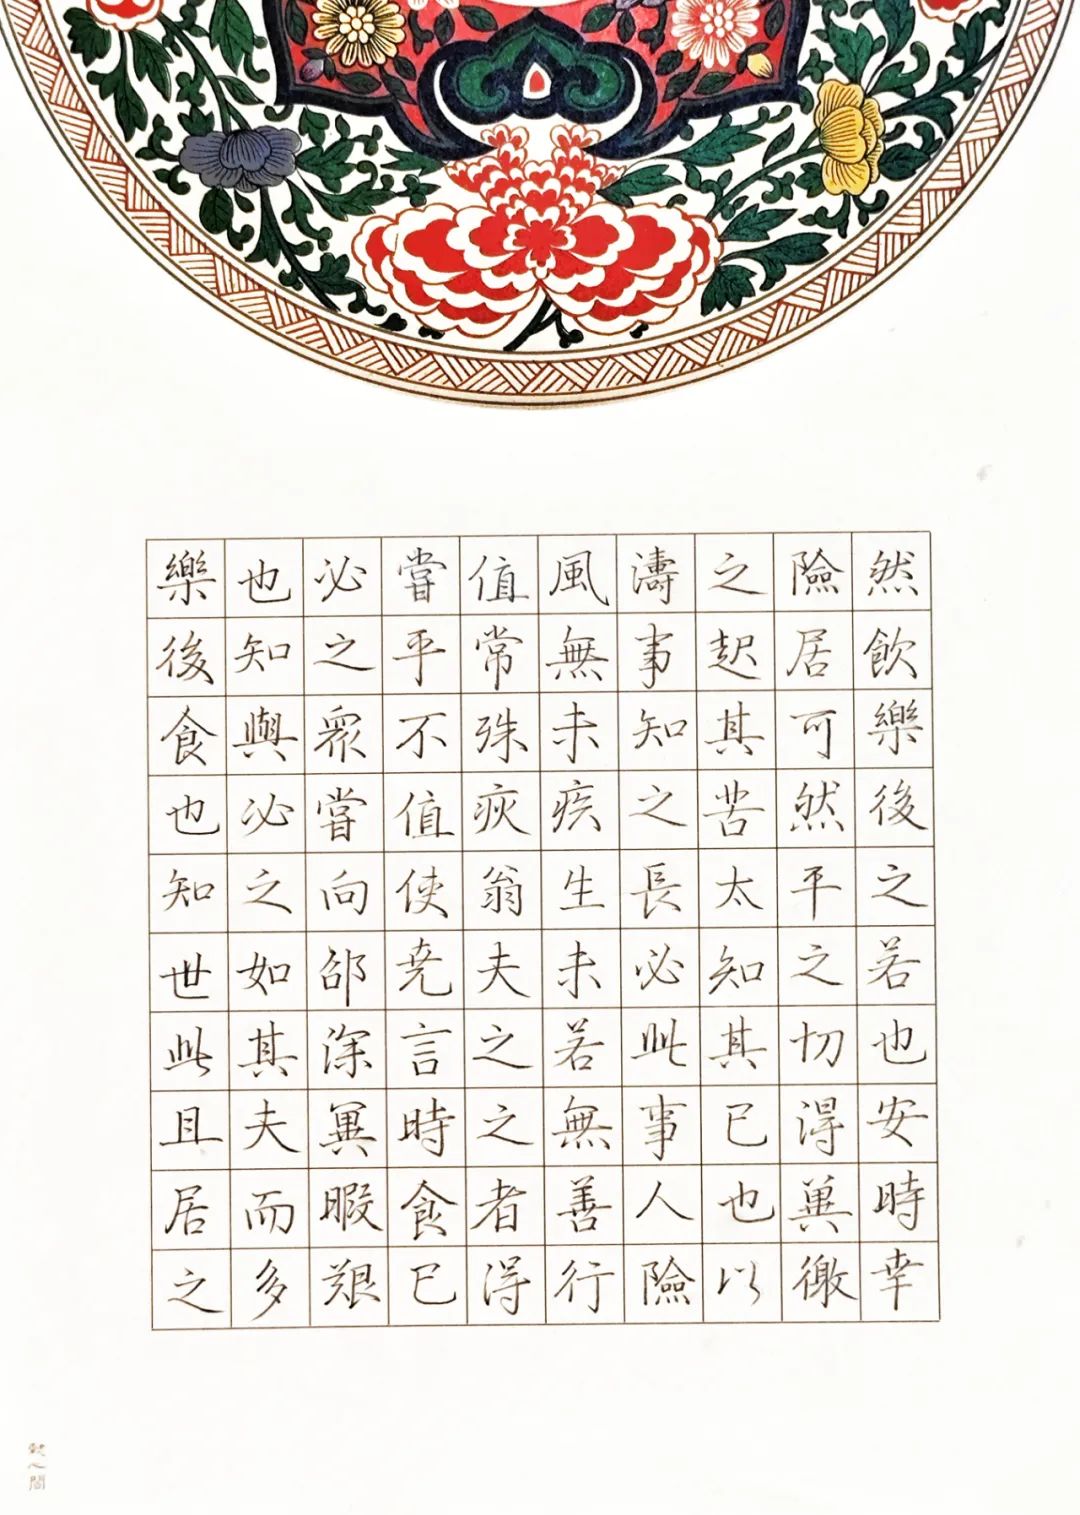 樂也必嘗值風濤之險然
後知之平常無事起居飲
食與眾不殊未知其可樂
也必嘗值疢疾之苦然後
知之向使翁生長太平之
世如邵尭夫未必知之若
此其深言之若此其切也
且夫冀時之無事已得安
居而暇食者善人也冀時
之多艱已得行險以徼幸